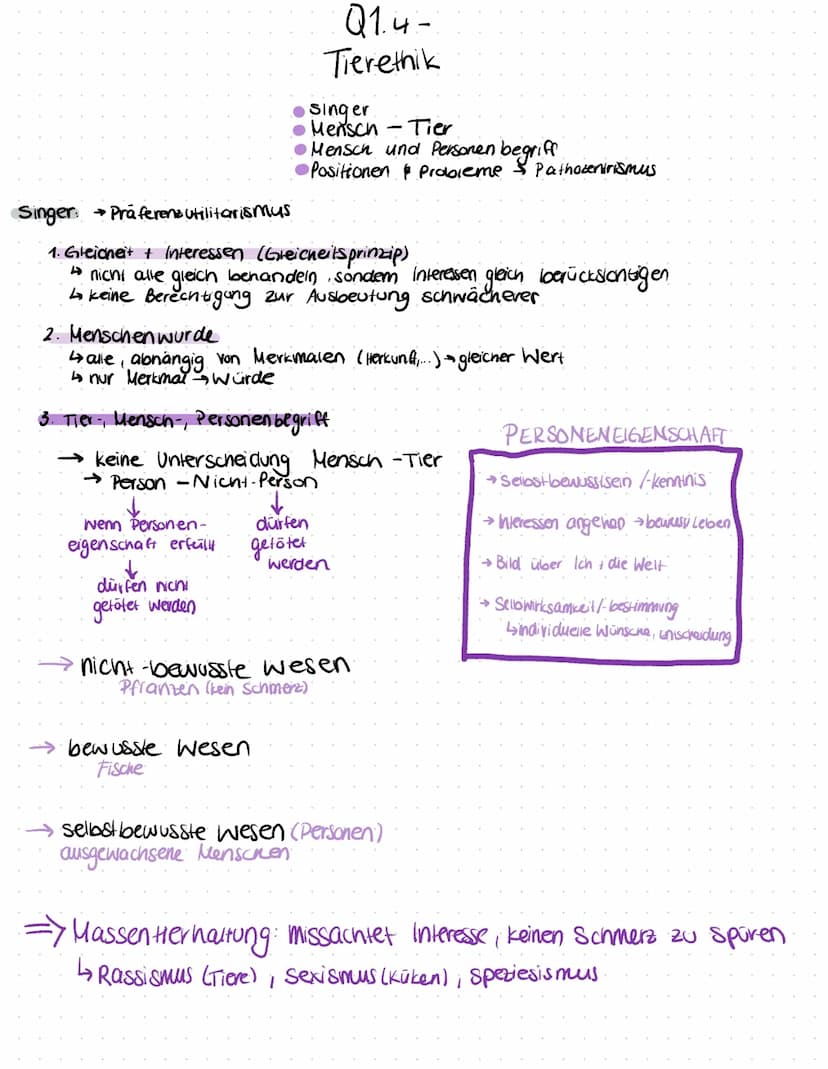 Q1.4 -
Tierethik
● Singer
● Mensch - Tier
● Mensch und Personenbegriff
● Positionen & Probleme → Pathozentrismus
Singer: → Präferenzutilitarismus
1. Gleicheit + Interessen (Gleicheitsprinzip)
↳ nicht alle gleich behandeln, sondern Interessen gleich berücksichtigen
↳ keine Berechtigung zur Ausbeutung schwächerer
2. Menschenwürde
↳ alle, abhängig von Merkmalen (Herkunft,...) → gleicher Wert
↳ nur Merkmal → Würde
3. Tier-, Mensch-, Personenbegriff
→ keine Unterscheidung Mensch - Tier
→ Person - Nicht-Person
wenn Personen-
eigenschaft erfüllt
↓
dürfen nicht
getötet werden
dürfen
getötet
werden
PERSONENEIGENSCHAFT
→ Selbstbewusstsein /-kenntnis
→ Interessen angehab → bewusst leben
→ Bild über Ich + die Welt
→ Selbwirksamkeit/-bestimmung
↳ individuelle Wünsche, unscheidung
→ nicht-bewusste Wesen
Pflanzen (kein Schmerz)
→ bewusste Wesen
Fische
→ selbstbewusste Wesen (Personen)
ausgewachsene Menschen
⇒ Massentierhaltung: missachtet Interesse, keinen Schmerz zu spüren
↳ Rassismus (Tiere), Sexismus (Küken), Speziesismus